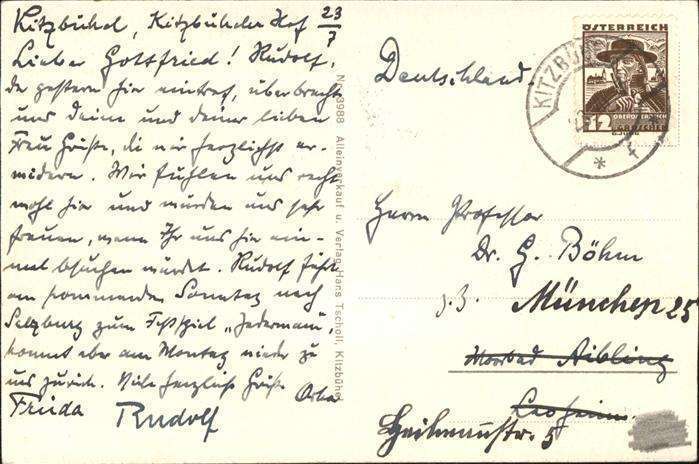 Kitzbühel, Kitzbüheler Hof 23/7
Lieber Gottfried! Rudolf,
der gestern hier eintraf, überbrachte
uns deine und deiner lieben
Frau Grüße, die wir herzlichst er-
widern. Wir fühlen uns recht
wohl hier und würden uns sehr
freuen, wenn Ihr uns hier ein-
mal besuchen würdet. Rudolf fährt
am kommenden Sonntag nach
Salzburg zum Festspiel „Jedermann“,
kommt aber am Montag wieder zu
uns zurück. Viele herzliche Grüße
Frieda Rudolf
Nr. 3988 Alleinverkauf u. Verlag Hans Tscholl, Kitzbühel
Deutschland.
ÖSTERREICH
12
OBERÖSTERREICH
KITZBÜ
Herrn Professor
Dr. G. Böhm
z. Z. München 25
Moorbad Aibling
5